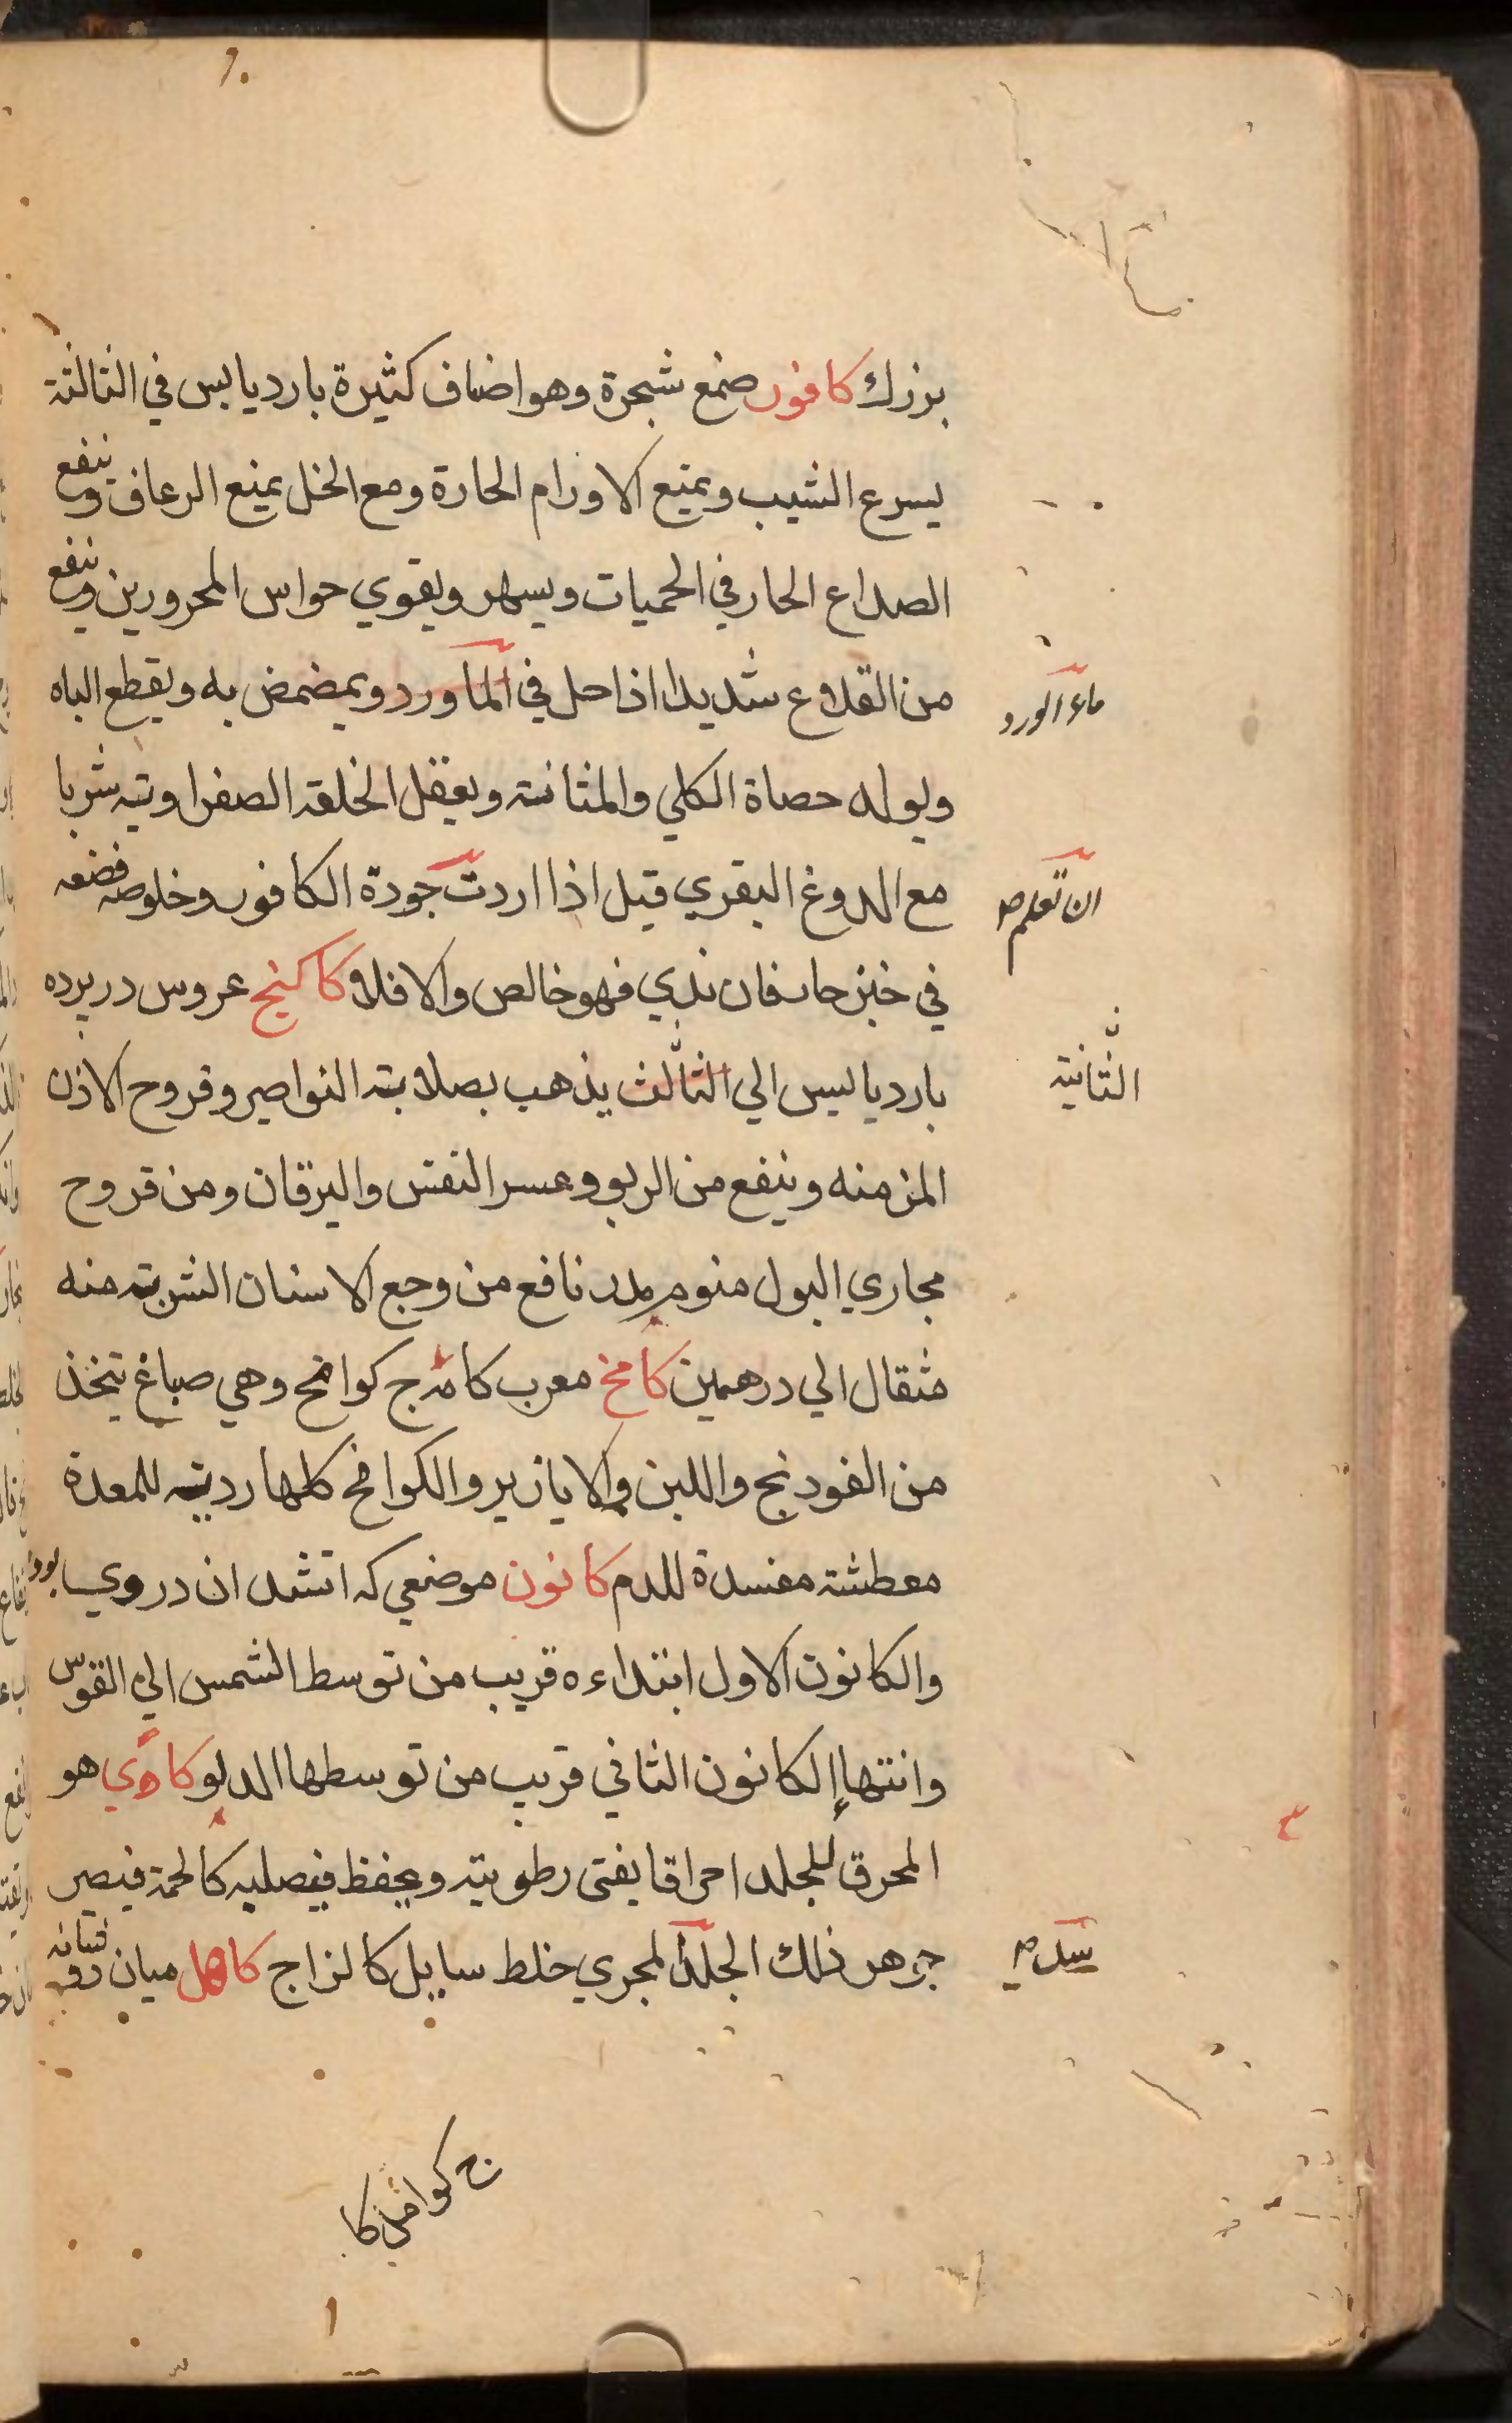 بزرك كافور صمغ شجرة وهو اصناف كثيرة بارد يابس في الثالثة
يسرع الشيب ويمنع الاورام الحارة ومع الخل يمنع الرعاف وينفع
الصداع الحار في الحميات ويسهر ويقوي حواس المحرورين وينفع
من القلاع شديدا اذا حل في الماورد ويمضمض به ويقطع الباه
ماء الورد
ويولد حصاة الكلي والمثانة ويعقل الخلقة الصفراوية شربا
مع الدوغ البقري قيل اذا اردت جودة الكافور وخلوصه فضعه
ان تعلم صح
في خبز حار فان ندي فهو خالص والا فلا كاكنج عروس در پرده
بارد يابس الي الثالث يذهب بصلابته النواصير وقروح الاذن
الثانية
المزمنه وينفع من الربو وعسر النفس واليرقان ومن قروح
مجاري البول منوم مدر نافع من وجع الاسنان الشربة منه
مثقال الي درهمين كامخ معرب كامه ج كوامخ وهي صباغ يتخذ
من الفودنج واللبن والابازير والكوامخ كلها ردية للمعدة
معطشة مفسدة للدم كانون موضعي كه اتشدان در وي بود
والكانون الاول ابتداءه قريب من توسط الشمس الي القوس
وانتها الكانون الثاني قريب من توسطها الدلو كاوي هو
المحرق للجلد احراقا يفنى رطوبته ويجفف فيصليه كالحمة فيصير
جوهر ذلك الجلد لمجري خلط سايل كالزاج كاهل ميان دو شانه
يسد صح
ج كوامخ كا